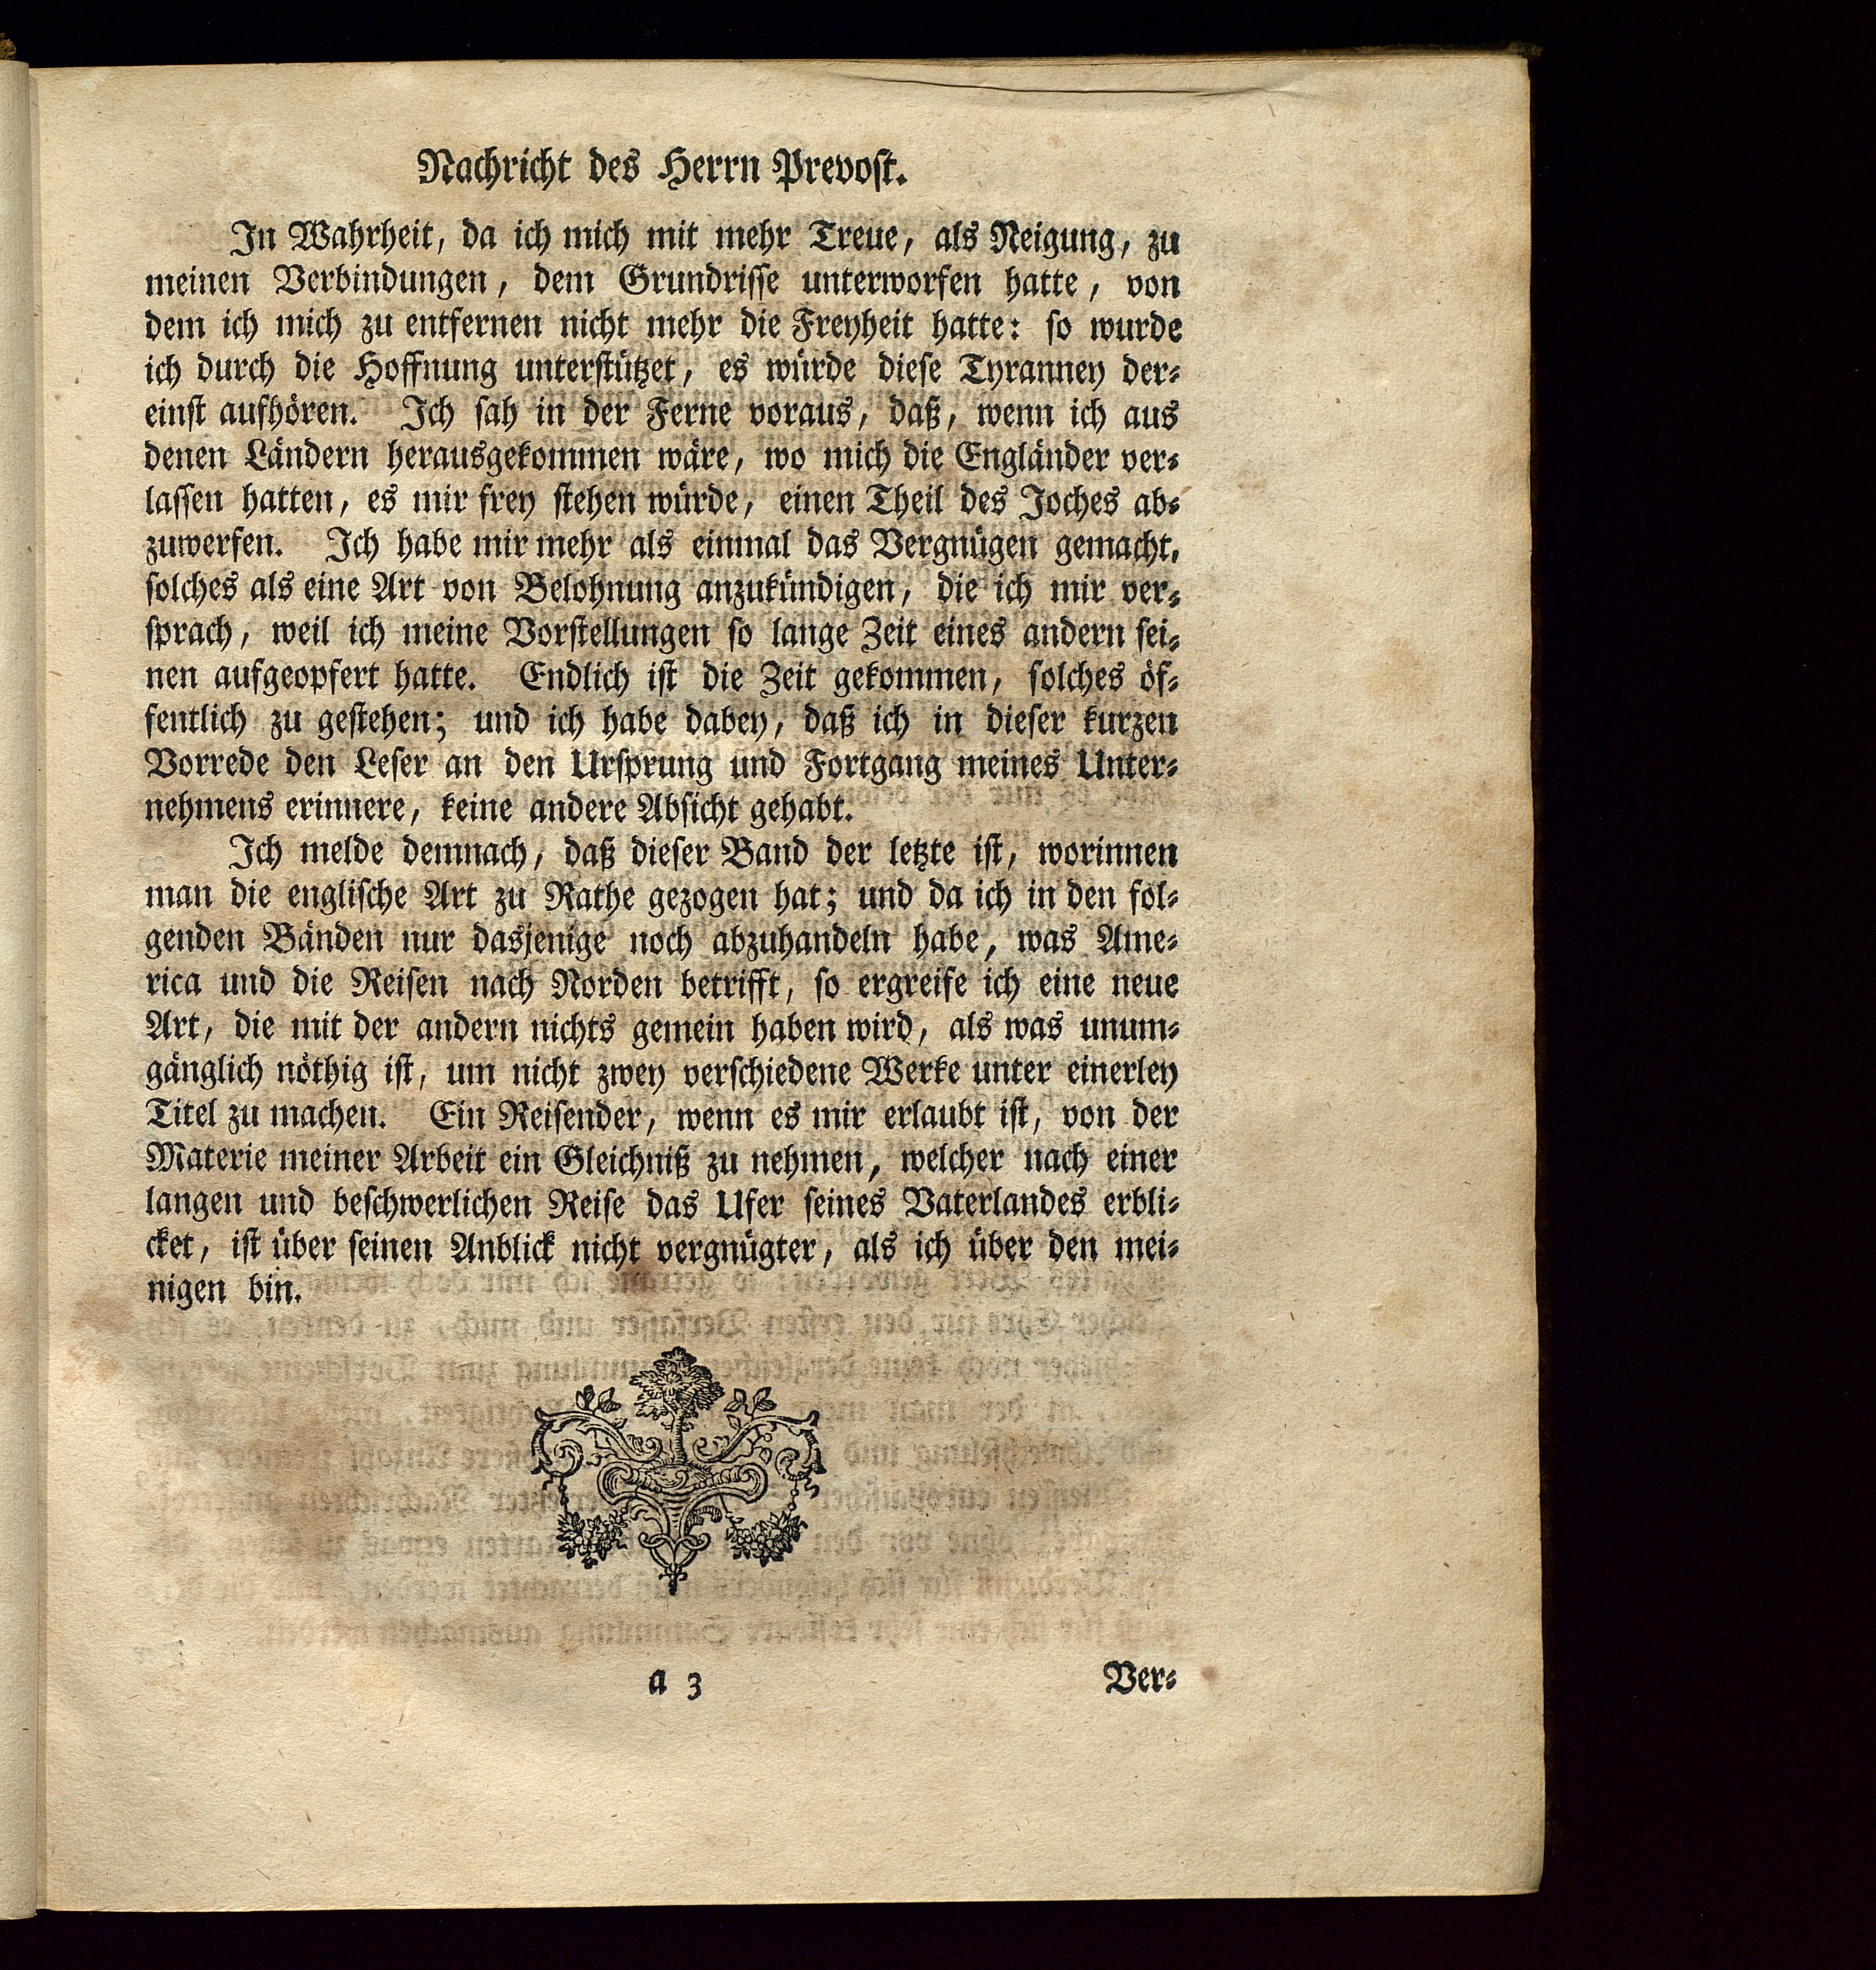 Nachricht des Herrn Prevost.
In Wahrheit, da ich mich mit mehr Treue, als Neigung, zu
meinen Verbindungen, dem Grundrisse unterworfen hatte, von
dem ich mich zu entfernen nicht mehr die Freyheit hatte: so wurde
ich durch die Hoffnung unterstützet, es würde diese Tyranney der-
einst aufhören. Ich sah in der Ferne voraus, daß, wenn ich aus
denen Ländern herausgekommen wäre, wo mich die Engländer ver-
lassen hatten, es mir frey stehen würde, einen Theil des Joches ab-
zuwerfen. Ich habe mir mehr als einmal das Vergnügen gemacht,
solches als eine Art von Belohnung anzukündigen, die ich mir ver-
sprach, weil ich meine Vorstellungen so lange Zeit eines andern sei-
nen aufgeopfert hatte. Endlich ist die Zeit gekommen, solches öf-
fentlich zu gestehen; und ich habe dabey, daß ich in dieser kurzen
Vorrede den Leser an den Ursprung und Fortgang meines Unter-
nehmens erinnere, keine andere Absicht gehabt.
Ich melde demnach, daß dieser Band der letzte ist, worinnen
man die englische Art zu Rathe gezogen hat; und da ich in den fol-
genden Bänden nur dasjenige noch abzuhandeln habe, was Ame-
rica und die Reisen nach Norden betrifft, so ergreife ich eine neue
Art, die mit der andern nichts gemein haben wird, als was unum-
gänglich nöthig ist, um nicht zwey verschiedene Werke unter einerley
Titel zu machen. Ein Reisender, wenn es mir erlaubt ist, von der
Materie meiner Arbeit ein Gleichniß zu nehmen, welcher nach einer
langen und beschwerlichen Reise das Ufer seines Vaterlandes erbli-
cket, ist über seinen Anblick nicht vergnügter, als ich über den mei-
nigen bin.
a 3 Ver-